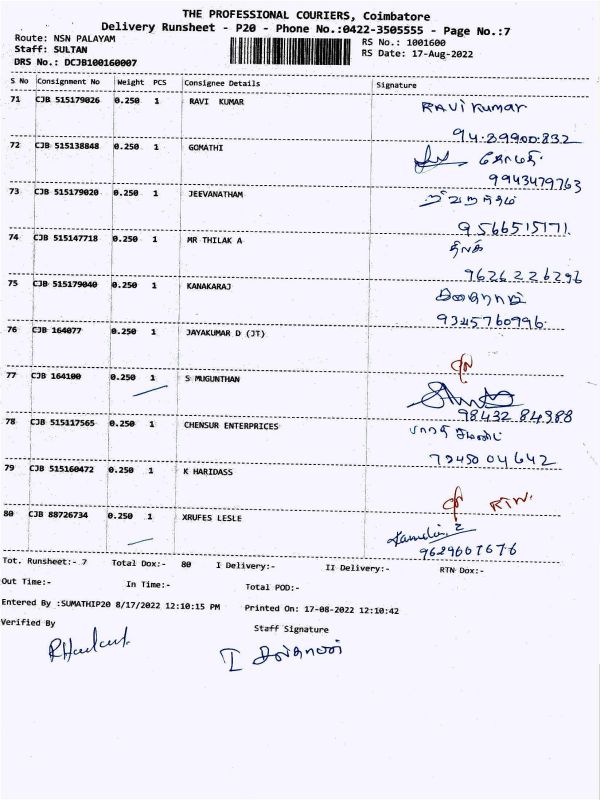 THE PROFESSIONAL COURIERS, Coimbatore
Delivery Runsheet - P20 - Phone No.:0422-3505555 - Page No.:7
Route: NSN PALAYAM
RS No.: 1001600
Staff: SULTAN
RS Date: 17-Aug-2022
DRS No.: DCJB100160007
S No Consignment No Weight PCS Consignee Details Signature
71 CJB 515179026 0.250 1 RAVI KUMAR RAVi kumar
94.89900.832
72 CJB 515138848 0.250 1 GOMATHI கோமதி
9943479763
73 CJB 515179020 0.250 1 JEEVANATHAM
9566515171.
74 CJB 515147718 0.250 1 MR THILAK A திலக்
9626226296
75 CJB 515179040 0.250 1 KANAKARAJ கனகராஜ்
9345760996.
76 CJB 164077 0.250 1 JAYAKUMAR D (JT)
77 CJB 164100 0.250 1 S MUGUNTHAN
98432 84388
78 CJB 515117565 0.250 1 CHENSUR ENTERPRICES
79 CJB 515160472 0.250 1 K HARIDASS
RTN.
80 CJB 88726734 0.250 1 XRUFES LESLE
9629607676
Tot. Runsheet:- 7 Total Dox:- 80 I Delivery:- II Delivery:- RTN Dox:-
Out Time:- In Time:- Total POD:-
Entered By :SUMATHIP20 8/17/2022 12:10:15 PM Printed On: 17-08-2022 12:10:42
Verified By Staff Signature